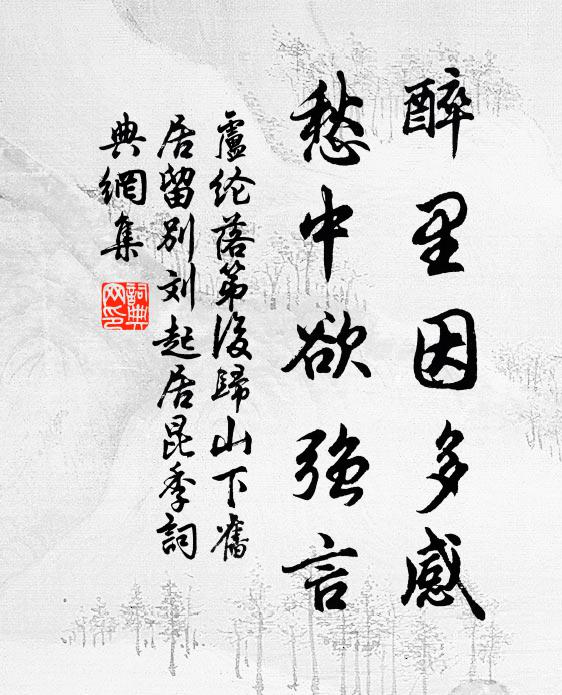 醉里因多感
愁中欲強言
盧纶落第後歸山下舊
居留別刘起居昆季詞
典網集
詞典网印